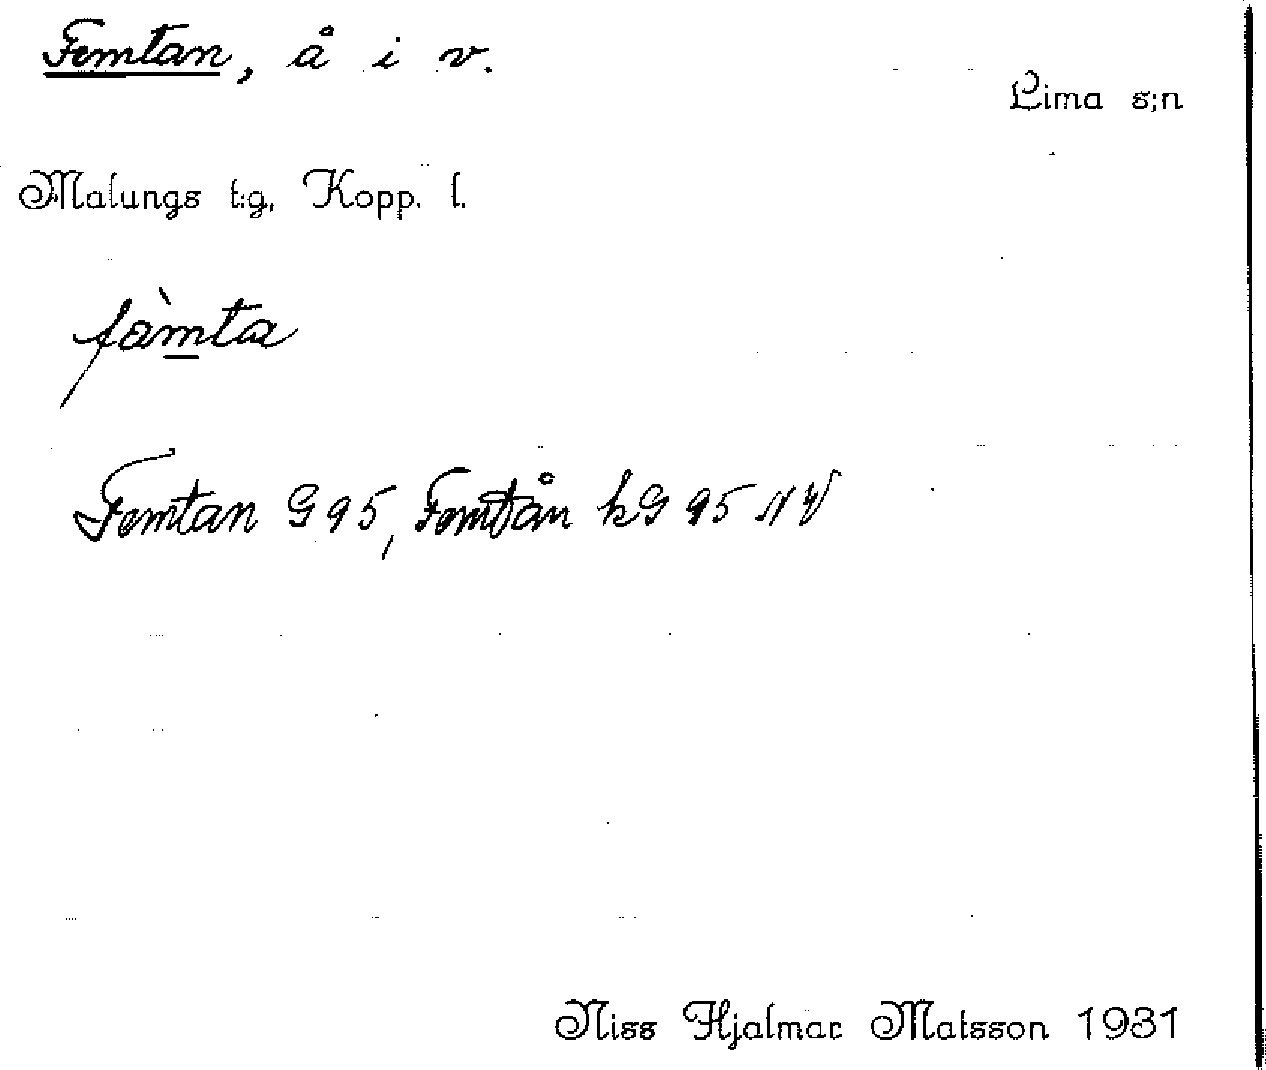 Femtan, å i v.
Lima s:n
Malungs t:g, Kopp. l.
fàmta
Femtan G 95, Femtån kG 95 NV
Niss Hjalmar Matsson 1931